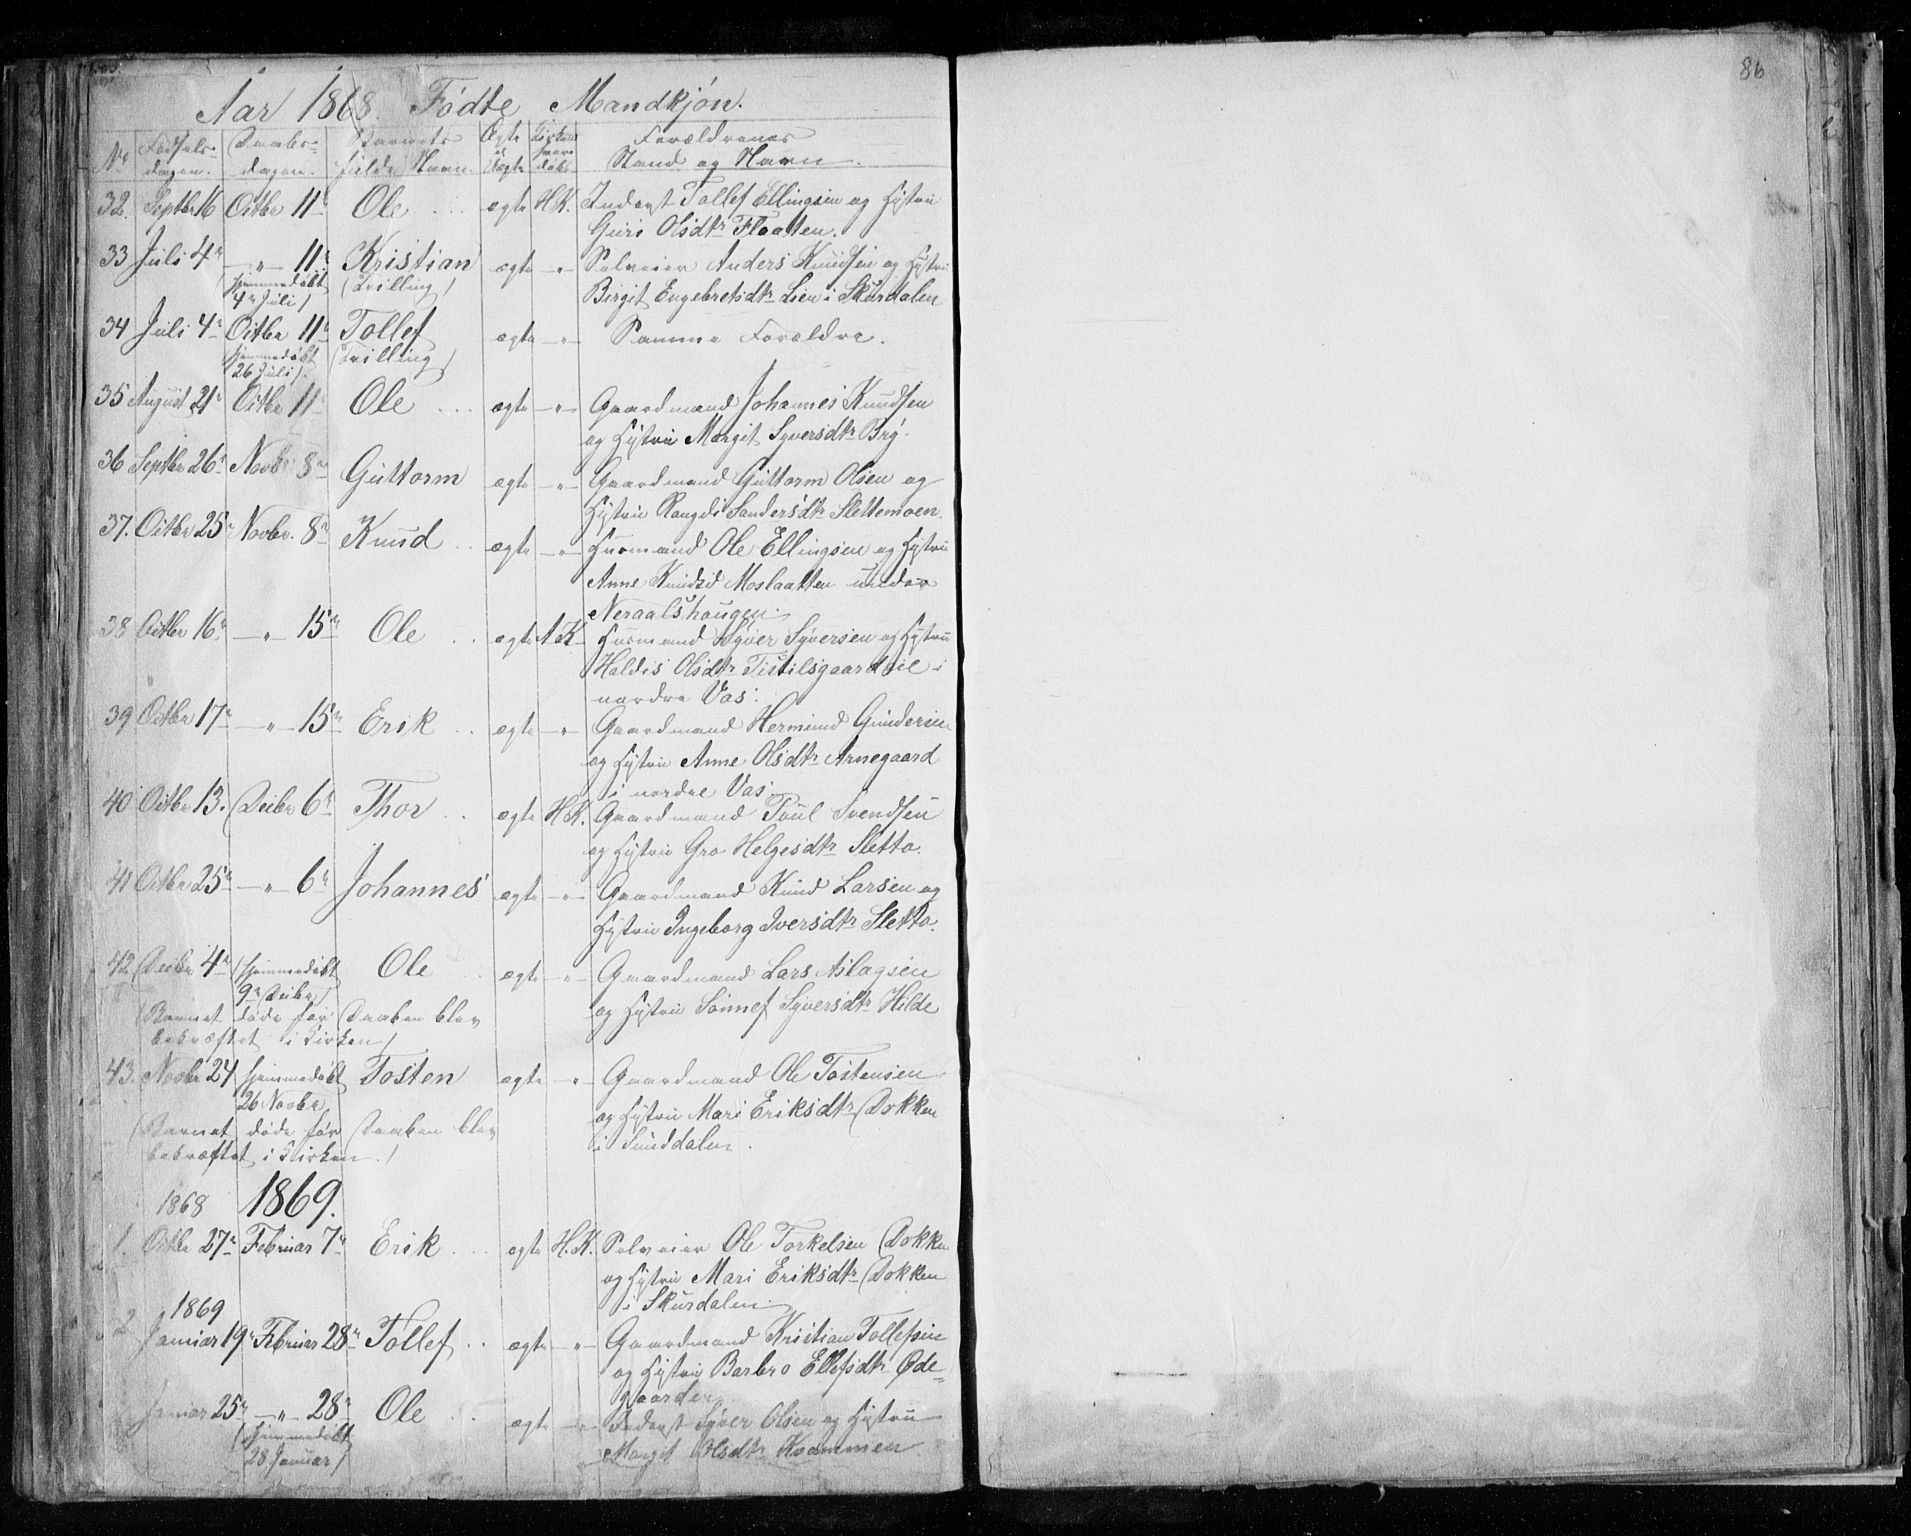 86
Aar 1868. Fødte Mandkjøn.
No Fødsels- dagen. Daabs- dagen. Barnets fulde Navn. Ægte el. Uægte Forældrenes Stand og Navn.
32. Septbr 16 Octbr 11te Ole ægte H.K. Inderst Tollef Ellingsen og Hustru
Guri Olsdtr Flaaten.
33 Juli 4de —"— 11te Kristian ægte —"— Selveier Anders Knudsen og Hustru
(hjemmedøbt (Trilling)
4de Juli) Birgit Engebretsdtr Lien i Skurdalen
34 Juli 4de Octbr 11te Tollef ægte —"— Samme Forældre.
(hjemmedøbt (Trilling)
26 Juli)
35 August 21de Octbr 11te Ole ægte —"— Gaardmand Johannes Knudsen
og Hustru Margit Syversdtr Bry.
36 Septbr 26de Novbr 8de Guttorm ægte —"— Gaardmand Guttorm Olsen og
Hustru Rangdi Sandersdtr Slettemoen.
37. Octbr 25de Novbr. 8de Knud ægte —"— Husmand Ole Ellingsen og Hustru
Anne Knudsd Moslaatten under
Neraalshaugen.
38 Octbr 16de —"— 15de Ole ægte A.K. Husmand Syver Syversen og Hustru
Haldis Olsdtr Tistilsgaardeie i
nordre Vas.
39 Octbr 17de —"— 15de Erik ægte —"— Gaardmand Hermund Gundersen
og Hustru Anne Olsdtr Arnegaard
i nordre Vas.
40 Octbr 13. Decbr 6te Thor ægte H.K. Gaardmand Poul Svendsen
og Hustru Gro Helgesdtr Sletto.
41 Octbr 25de —"— 6te Johannes ægte —"— Gaardmand Knud Larsen og
Hustru Ingeborg Iversdtr Sletto.
42. Decbr 4de (hjemmedøbt Ole ægte —"— Gaardmand Lars Aslagsen
9de Decbr) og Hustru Sønnef Syversdtr Hilde
(Barnet døde før Daaben blev
bekræftet i Kirken)
43. Novbr 24 hjemmedøbt Tosten ægte —"— Gaardmand Ole Tostensen
26 Novbr og Hustru Mari Eriksdtr Dokken
(Barnet døde før Daaben blev
bekræftet i Kirken.) i Sunddalen.
1868 1869.
1. Octbr 27de Februar 7de Erik ægte H.K. Selveier Ole Torkelsen Dokken
og Hustru Mari Eriksdtr Dokken
i Skurdalen.
1869
2 Januar 19de Februar 28de Tollef ægte —"— Gaardmand Kristian Tollefsen
og Hustru Barbro Ellefsdtr Øde-
gaarden
Januar 25de —"— 28de Ole ægte —"— Inderst Syver Olsen og Hustru
(hjemmedøbt
28 Januar) Marget Olsdtr Kvammen.